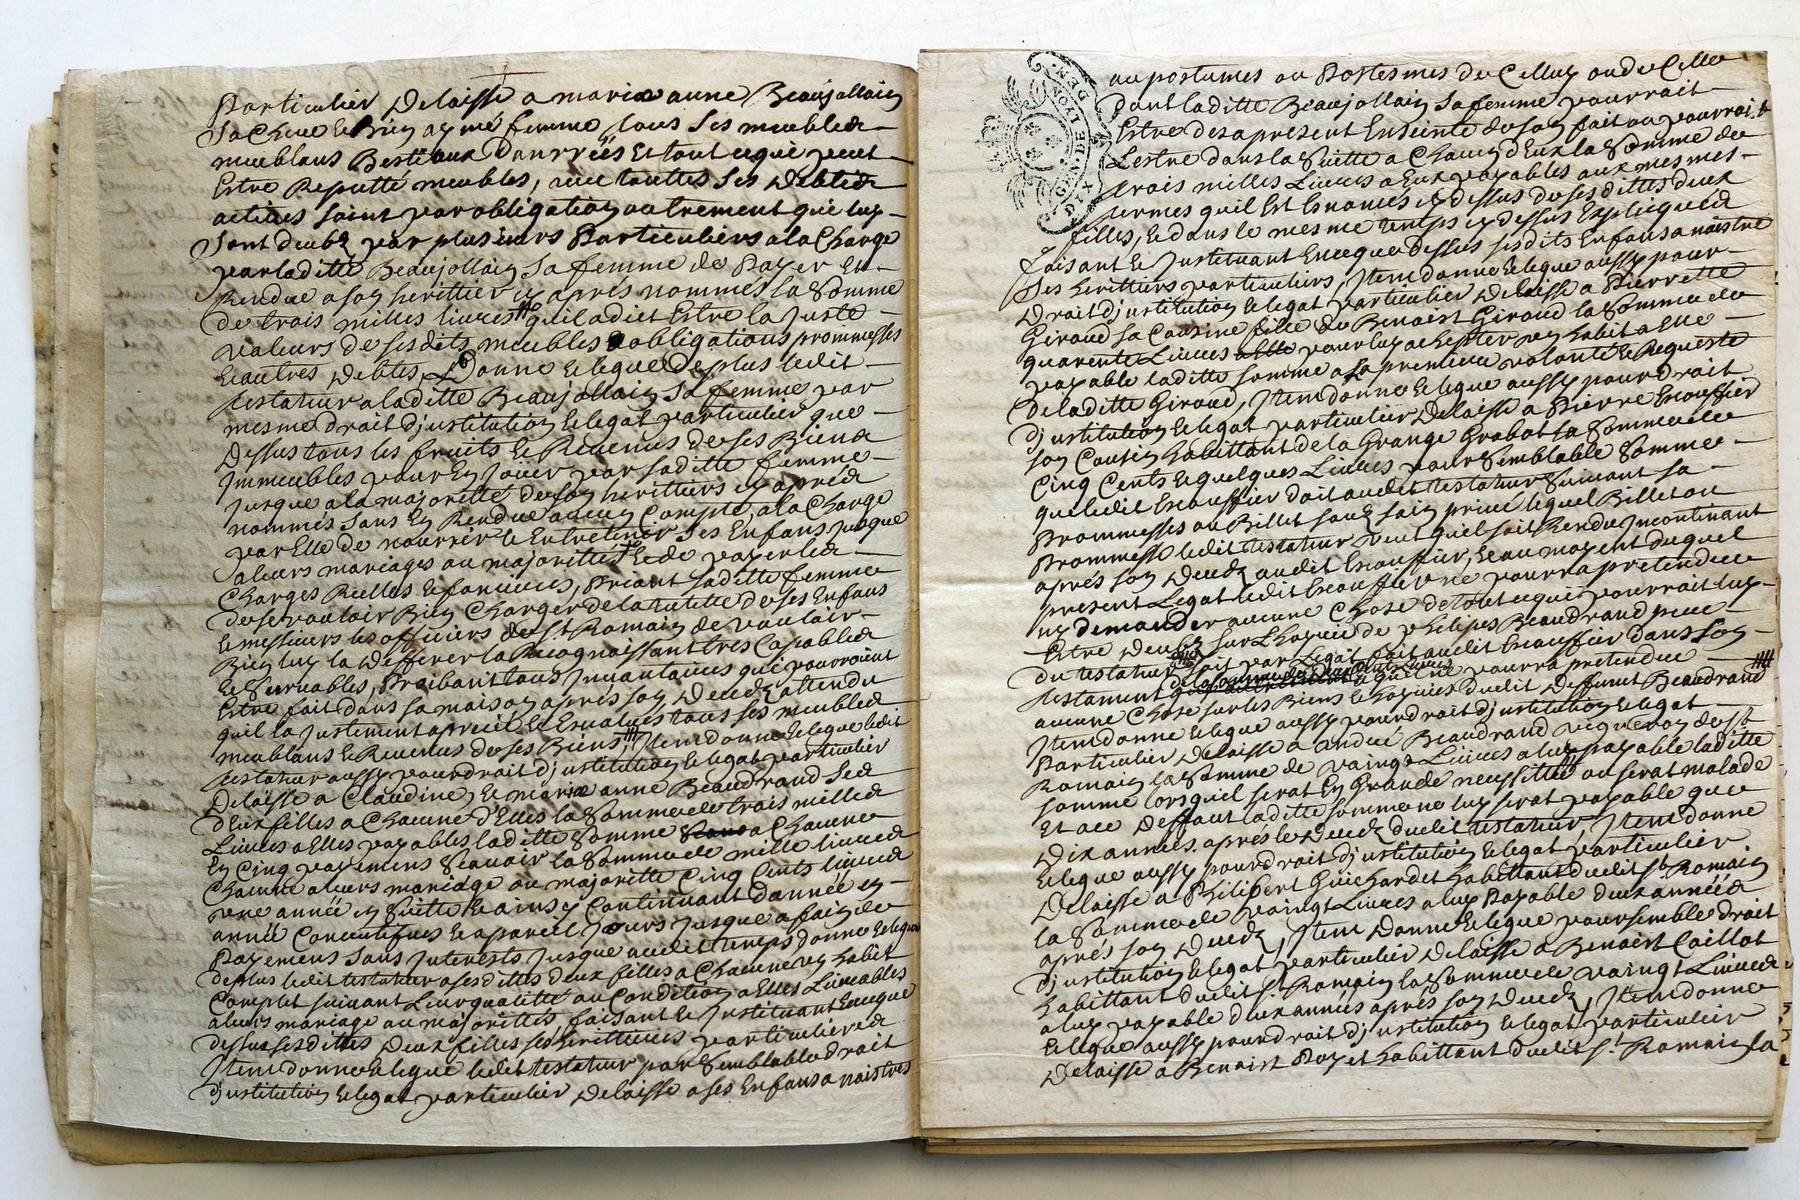 Particulier Delaisse a marie anne Beaujollain
Sa Chere et Bien aymé femme, tous ses meubles
meublans Bestiaux Danrrées Et tout ce qui peut
Estre Reputté meubles, avec touttes ses Debtes
actives soint par obligation autrement qui luy
sont deubz par plusieurs Particuliers a la Charge
par laditte Beaujollain sa femme de Payer Et
Rendre a son herittier cy aprés nommés la Somme
de trois milles livres qu'il a dict Estre la Juste
valeurs de ses dits meubles obligations prommesses
et autres Debtes, Donne et legue de plus ledit
testateur a laditte Beaujollain sa femme par
mesme droit d'justitution et legat particulier que
Dessus tous les fruits et Revenus de ses Biens
Immeubles pour En Joüir par saditte femme
Jusque a la majoritté de son herittiers cy aprés
nommés sans En Rendre aucun Compte, a la Charge
par Elle de nourrir et Entretenir ses Enfans Jusque
a leurs mariages ou majorittés et de payer les
Charges Rielles et fonciéres, Priant saditte femme
de se vouloir Bien Charger de la tutelle de ses Enfans
et messieurs les officiers de St. Romain de vouloir
Bien luy la Defferer la Recognaissant tres Capable
et servables, Proibant tous Invantaires qui pourroient
Estre fait dans sa maison aprés son Decedz attendu
qu'il la Justement aprecié et Evalués tous ses meubles
meublans et Revenus de ses Biens, Item donne et legue ledit
testateur aussy pour droit d'justitution et legat particulier
Delaisse a Claudine, et marie anne Beaudrand ses
deux filles a Chacune d'Elles la Somme de trois milles
Livres a Elles payables laditte Somme a Chacune
En Cinq payemens Scavoir la Somme de mille livres
Chacune a leurs mariage ou majoritté Cinq Cents livres
une année En Suitte et ainsy Continuant d'année en
année Consecutifves et a pareil Jours Jusque a fain de
Payemens sans Interests Jusque audit temps donne et legue
de plus ledit testateur a ses dittes deux filles a Chacune un habit
Complet suivant Leur qualitté ou Condition a Elles Livrables
a leurs mariage ou majorittés faisant et Justituant Encque
dessus ses dittes Deux filles ses herittieres particulieres
Item donne et legue ledit testateur par Semblable droit
d'justitution et legat particulier Delaisse a ses Enfans a naistres
au postumes ou Postesmes de Celluy ou de Celle
dont laditte Beaujollain sa femme pourrait
Estre des a present Enseinte de son fait ou pourroit
L'estre dans la Suitte a Chacun d'Eux la Somme de
trois milles Livres a Eux payables aux mesmes
termes qu'il Est Enoncés cy dessus de ses dittes deux
filles, Et dans le mesme temps cy dessus Expliqués
faisant et Justituant Encque Dessus ses dits Enfans a naistre
ses herittiers particuliers, Item donne et legue aussy pour
Droit d'justitution et legat particulier Delaisse a Pierrette
Giroud sa Cousine fille de Benoist Giroud la Somme de
quarente Livres pour luy achepter un habit
payable laditte somme a sa premiere volonté et Requeste
de laditte Giroud, Item donne et legue aussy pour droit
d'justitution et legat particulier Delaisse a Pierre Escouffier
son Cousin habittant de la Grange Grabot la Somme de
Cinq Cents et quelques Livres pour Semblable Somme
que ledit Escouffier doit audit testateur Suivant sa
Prommesses ou Billet souz sein privé lequel Billet ou
Prommesse ledit testateur veut qu'il soit Rendu Incontinant
aprés son Decedz audit Escouffier, Et au moyent duquel
present Legat ledit Escouffier ne pourra pretendre
ny demander aucune Chose de tout ce qui pourrait luy
Estre deubz sur L'hoyrie de Phelipes Beaudrand pere
du testateur soit par Legat fait audit Escouffier dans son
testament et qu'il ne pourra pretendre
aucune Chose sur les Biens et hoyries dudit Deffunct Beaudrand
Item donne et legue aussy pour droit d'justitution et legat
Particulier Delaisse a André Beaudrand vigneron de St.
Romain la Somme de vaingt Livres a luy payable laditte
somme lorsqu'il serat En Grande nessessitté ou serat malade
Et a ce Deffaut laditte somme ne luy serat payable que
Dix années aprés le Decedz dudit testateur, Item donne
et legue aussy pour droit d'justitution et legat particulier
Delaisse a Philibert Guichardet habittant dudit St. Romain
la Somme de vaingt Livres a luy Payable deux années
aprés son Decedz, Item Donne et legue pour semble droit
d'justitution et legat particulier Delaisse a Benoist Caillot
habittant dudit St. Romain la Somme de vaingt Livres
a luy payable deux années aprés son Decedz, Item donne
et legue aussy pour droit d'justitution et legat particulier
Delaisse a Benoist Poyet habittant dudit St. Romain la